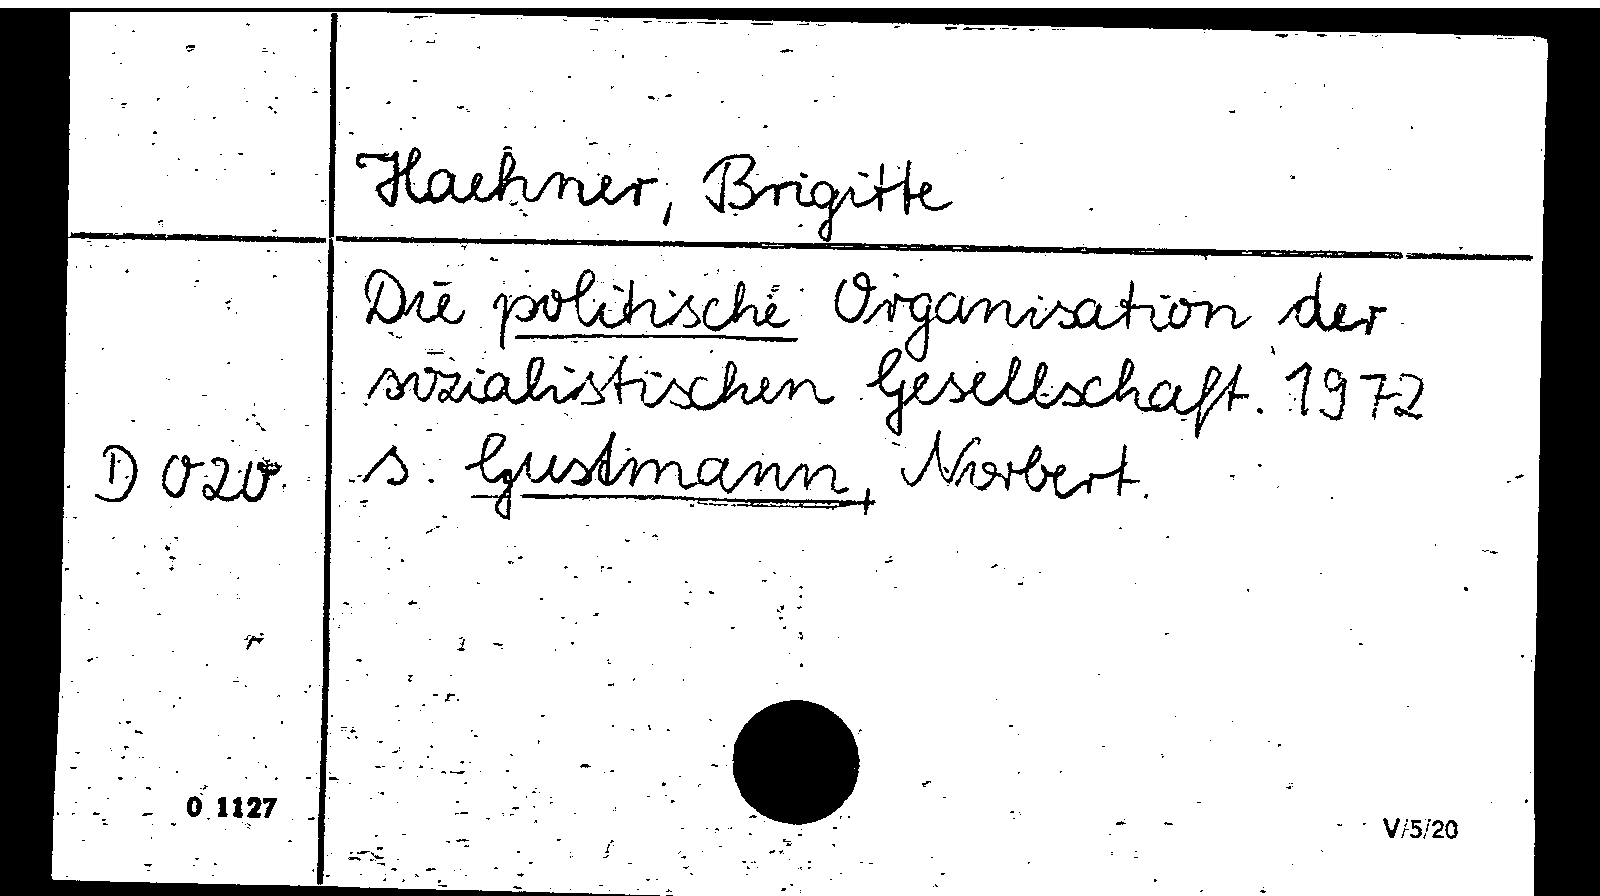 Haehner, Brigitte
Die politische Organisation der
sozialistischen Gesellschaft. 1972
D 020 s. Gustmann, Norbert.
0 1127
V/5/20